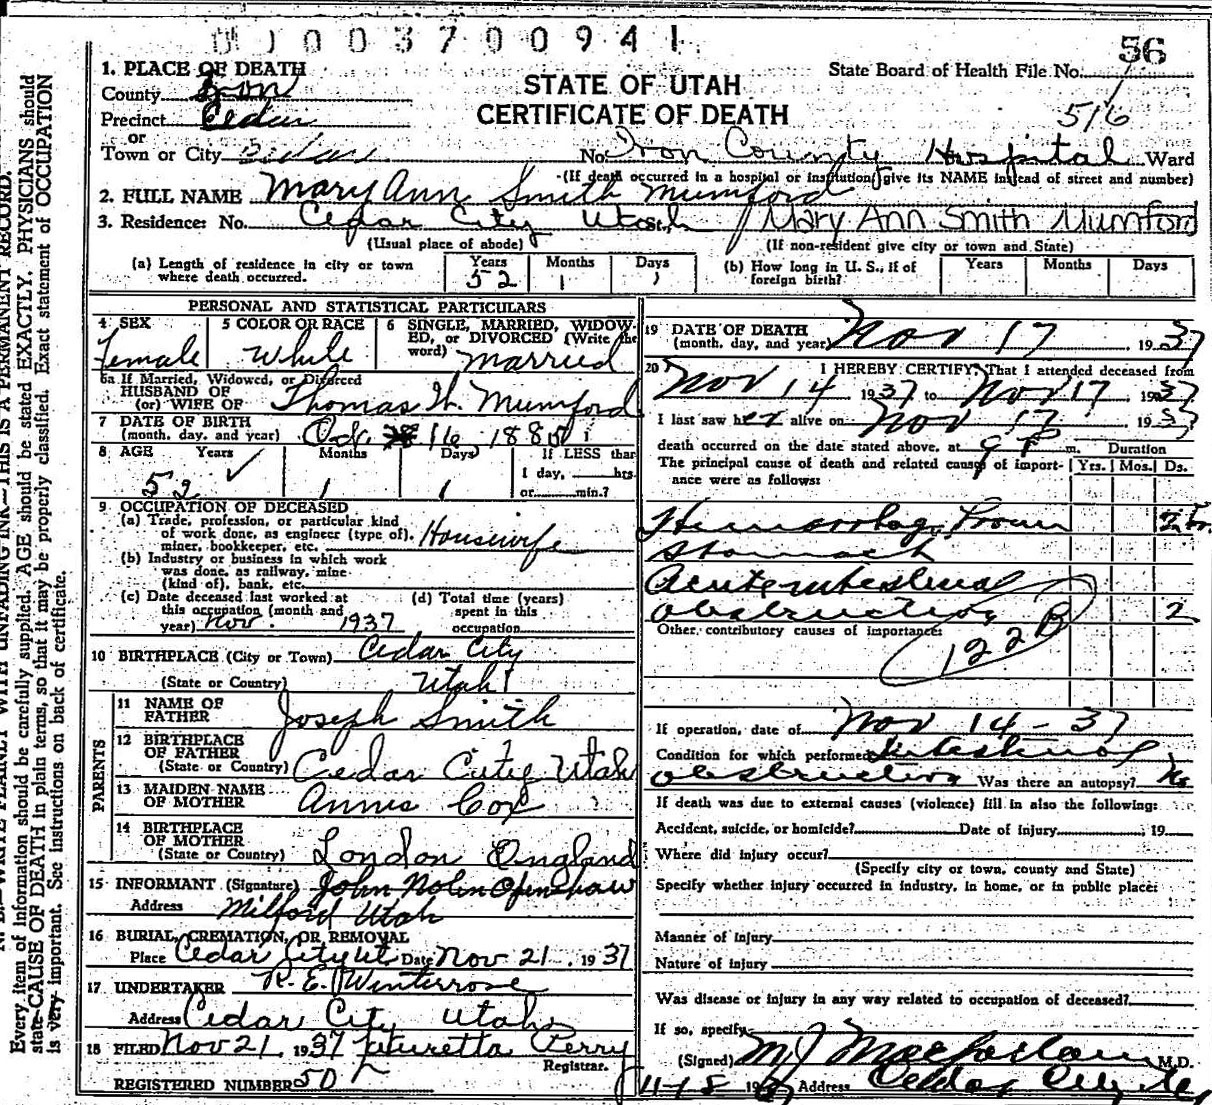 0100370094 1
56
1. PLACE OF DEATH
County Iron
Precinct Cedar
or
Town or City Cedar
STATE OF UTAH
CERTIFICATE OF DEATH
State Board of Health File No.
516
No. Iron County Hospital Ward
(If death occurred in a hospital or institution, give its NAME instead of street and number)
2. FULL NAME Mary Ann Smith Mumford
3. Residence: No. Cedar City Utah Mary Ann Smith Mumford
(Usual place of abode) (If non-resident give city or town and State)
(a) Length of residence in city or town where death occurred. Years 52 Months 1 Days 1
(b) How long in U. S., if of foreign birth? Years Months Days
PERSONAL AND STATISTICAL PARTICULARS
4 SEX female
5 COLOR OR RACE White
6 SINGLE, MARRIED, WIDOWED, or DIVORCED (Write the word) married
6a If Married, Widowed, or Divorced
HUSBAND OF
(or) WIFE OF Thomas H. Mumford
7 DATE OF BIRTH
(month, day, and year) Oct. 16, 1885
8 AGE Years 52 Months 1 Days 1 If LESS than 1 day, hrs. or min.?
9 OCCUPATION OF DECEASED
(a) Trade, profession, or particular kind
of work done, as engineer (type of),
miner, bookkeeper, etc. Housewife
(b) Industry or business in which work
was done, as railway, mine
(kind of), bank, etc.
(c) Date deceased last worked at
this occupation (month and
year) Nov. 1937
(d) Total time (years)
spent in this
occupation
10 BIRTHPLACE (City or Town) Cedar City
(State or Country) Utah
PARENTS
11 NAME OF
FATHER Joseph Smith
12 BIRTHPLACE
OF FATHER
(State or Country) Cedar City Utah
13 MAIDEN NAME
OF MOTHER Annie Cox
14 BIRTHPLACE
OF MOTHER
(State or Country) London England
15 INFORMANT (Signature) John Nolen Openshaw
Address Milford Utah
16 BURIAL, CREMATION, OR REMOVAL
Place Cedar City Ut Date Nov 21, 1937
17 UNDERTAKER R. E. Winterrose
Address Cedar City Utah
18 FILED Nov 21 1937 Perry
Registrar.
REGISTERED NUMBER 50
19 DATE OF DEATH
(month, day, and year) Nov 17 1937
20 I HEREBY CERTIFY, That I attended deceased from
Nov 14 1937 to Nov 17 1937
I last saw her alive on Nov 17 1937
death occurred on the date stated above, at 9 P m. Duration
The principal cause of death and related causes of importance were as follows: Yrs. Mos. Ds.
Hemorrhage From
stomach
Acute intestinal
obstruction 2
Other contributory causes of importance:
122 B
If operation, date of Nov 14-37
Condition for which performed Intestinal
obstruction Was there an autopsy? No
If death was due to external causes (violence) fill in also the following:
Accident, suicide, or homicide? Date of injury 19
Where did injury occur?
(Specify city or town, county and State)
Specify whether injury occurred in industry, in home, or in public place:
Manner of injury
Nature of injury
Was disease or injury in any way related to occupation of deceased?
If so, specify
(Signed) M J Macfarlane M.D.
11-18 1937 Address Cedar City Ut
N. B.—WRITE PLAINLY WITH UNFADING INK—THIS IS A PERMANENT RECORD.
Every item of information should be carefully supplied. AGE should be stated EXACTLY. PHYSICIANS should
state CAUSE OF DEATH in plain terms, so that it may be properly classified. Exact statement of OCCUPATION
is very important. See instructions on back of certificate.